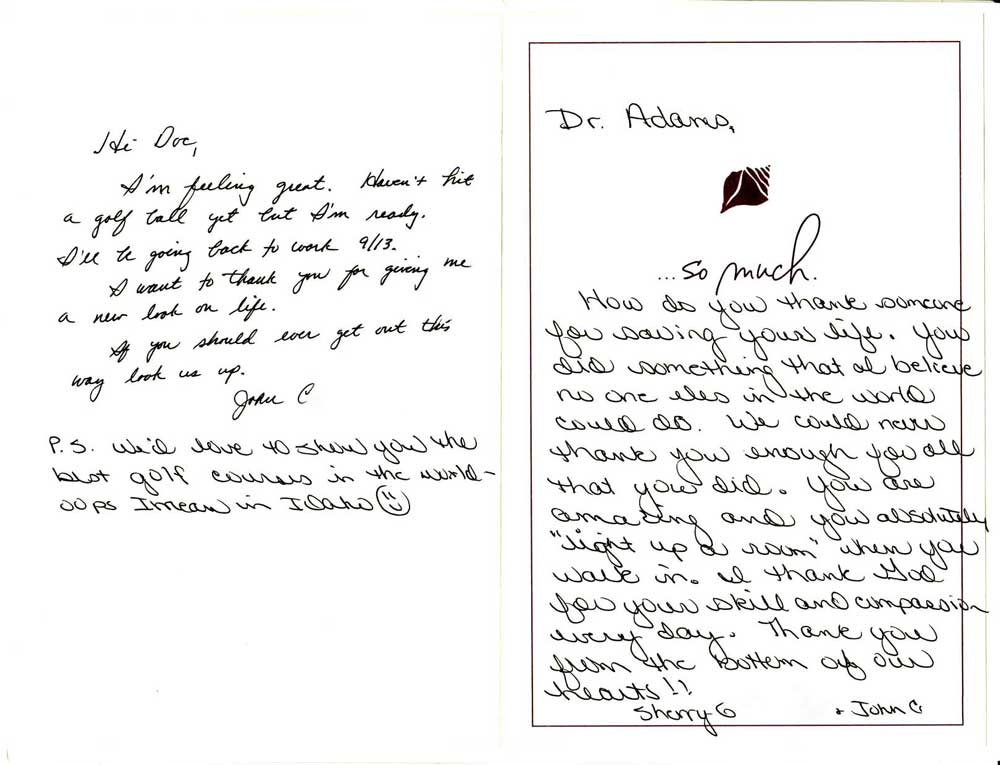 Hi Doc,
I'm feeling great. Haven't hit
a golf ball yet but I'm ready.
I'll be going back to work 9/13.
I want to thank you for giving me
a new look on life.
If you should ever get out this
way look us up.
John C
P.S. We'd love to show you the
best golf courses in the world-
oops I mean in Idaho
Dr. Adams,
...so much.
How do you thank someone
for saving your life. You
did something that I believe
no one eles in the world
could do. We could never
thank you enough for all
that you did. You are
amazing and you absolutely
"light up a room" when you
walk in. I thank God
for your skill and compassion
every day. Thank you
from the bottom of our
hearts!!
Sherry G + John C